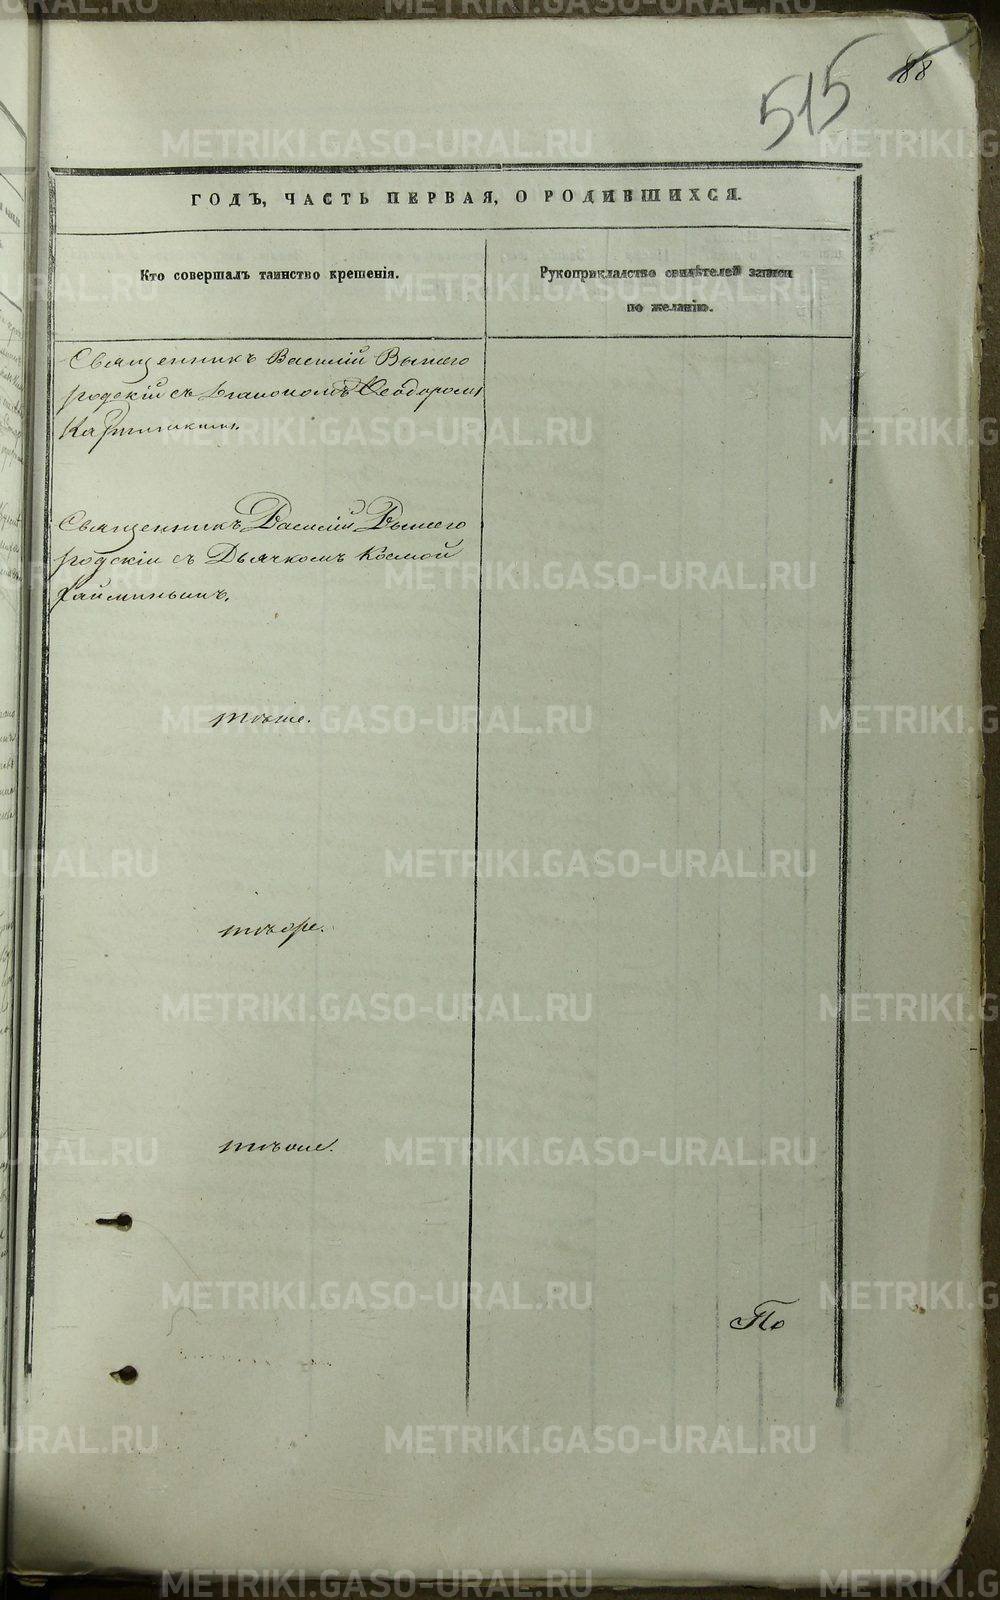 515
88
ГОДЪ, ЧАСТЬ ПЕРВАЯ, О РОДИВШИХСЯ.
Кто совершалъ таинство крещенія.
Рукоприкладство свидѣтелей записи
по желанію.
Священникъ Василій Вышего
родскій съ Діакономъ Ѳеодоромъ
Священникъ Василій Вышего
родскій съ Дьячкомъ Космой
тѣже.
тѣже.
тѣже.
По
METRIKI.GASO-URAL.RU